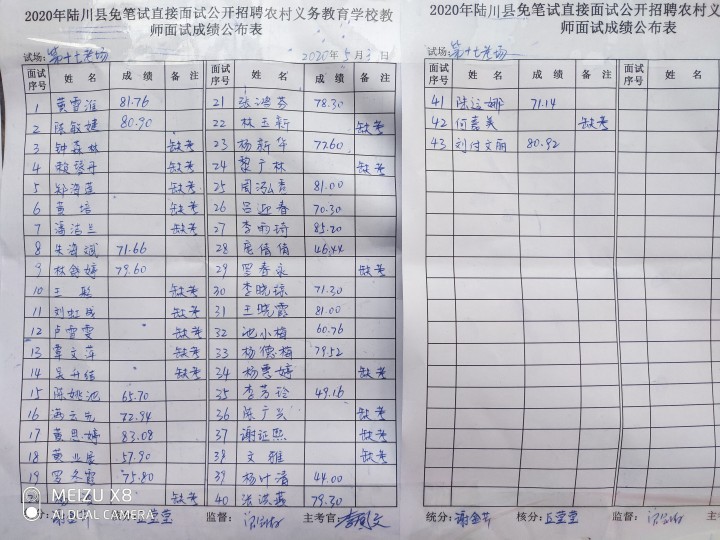 2020年陆川县免笔试直接面试公开招聘农村义务教育学校教
师面试成绩公布表
试场：第十七考场 2020年5月3日
面试序号 姓名 成绩 备注 面试序号 姓名 成绩 备注
1 黄雪淮 81.76 21 张鸿芬 78.30
2 陈敏婕 80.90 22 林玉新 缺考
3 钟森林 缺考 23 杨新华 77.60
4 缺考 24 黎广林 缺考
5 郑海莲 缺考 25 周泓嘉 81.00
6 黄培 缺考 26 吕迎春 70.30
7 潘洁兰 缺考 27 李雨琦 85.20
8 朱海斌 71.66 28 庞倩倩 46.44
9 79.60 29 罗春永 缺考
10 王 缺考 30 李晓琼 71.30
11 刘虹成 缺考 31 王晓霞 81.00
12 卢雪雯 缺考 32 池小梅 60.76
13 覃文萍 缺考 33 杨德梅 79.52
14 吴升结 缺考 34 杨婷 缺考
15 陈姚池 65.70 35 李芳玲 49.16
16 72.94 36 陈广 缺考
17 黄思婷 83.08 37 谢证熙 缺考
18 黄业展 57.90 38 文雅 缺考
19 罗冬霞 75.80 39 杨叶清 44.00
缺考 40 79.30
监督： 主考官：
MEIZU X8
AI DUAL CAMERA
2020年陆川县免笔试直接面试公开招聘农村义务教育学校
师面试成绩公布表
试场：第十七考场
面试序号 姓名 成绩 备注 面试序号 姓名
41 陆运娜 71.14
42 何嘉美 缺考
43 刘付文丽 80.92
统分：谢金芳 核分：丘莹莹 监督： 主